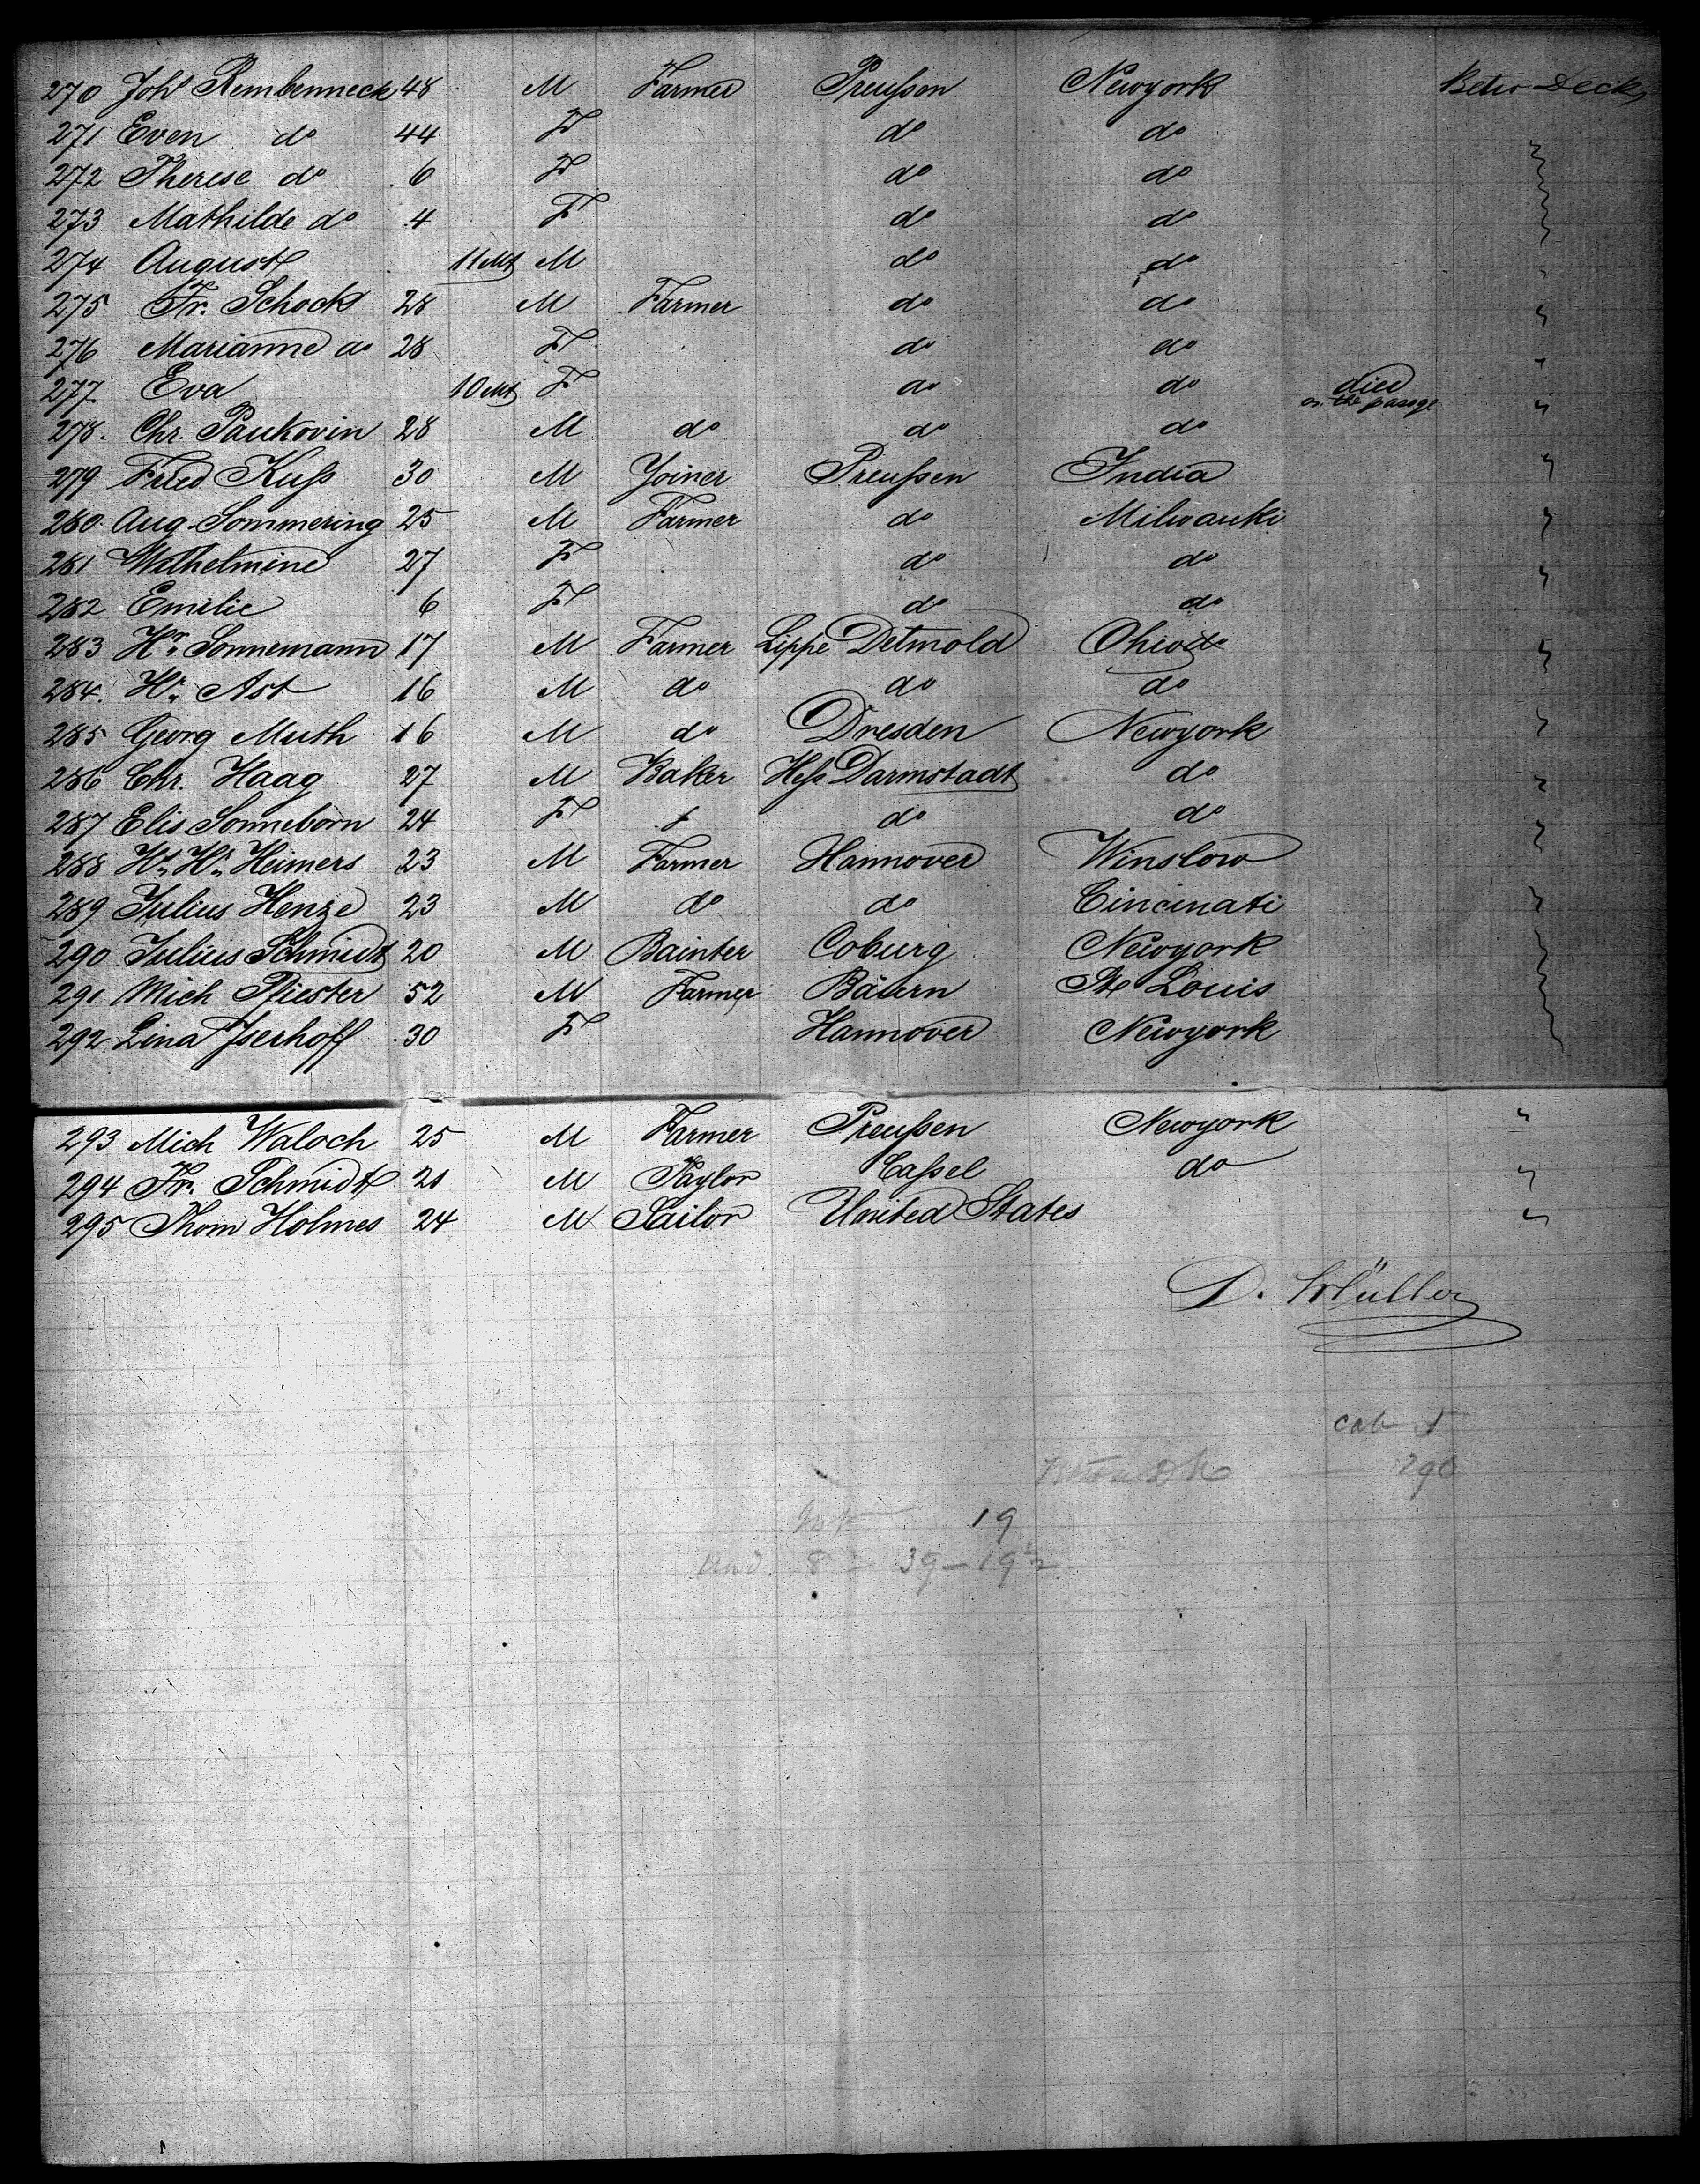 270 Joh. Rembenneck 48 M Farmer Preußen Newyork Betw Deck
271 Even do 44 F do do
272 Therese do 6 F do do
273 Mathilde do 4 F do do
274 August 11 Mt M do do
275 Fr. Schock 28 M Farmer do do
276 Marianne do 28 F do do
277 Eva 10 Mt F do do died on the passage
278. Chr. Paukovin 28 M do do do
279 Fried Kuß 30 M Joiner Preußen India
280. Aug. Sommering 25 M Farmer do Milwauki
281 Wilhelmine 27 F do do
282 Emilie 6 F do do
283 Hr. Sonnemann 17 M Farmer Lippe Detmold Ohio
284. Hr. Ast 16 M do do do
285 Georg Muth 16 M do Dresden Newyork
286 Chr. Haag 27 M Baker Heß Darmstadt do
287 Elis Sonneborn 24 F do do
288 Hr. Hr. Heimers 23 M Farmer Hannover Winslow
289 Julius Henze 23 M do do Cincinati
290 Julius Schmidt 20 M Bainter Coburg Newyork
291 Mich Pfiester 52 M Farmer Baiern St Louis
292 Lina Iserhoff 30 F Hannover Newyork
293 Mich Waloch 25 M Farmer Preußen Newyork
294 Fr. Schmidt 21 M Taylor Caßel do
295 Thom Holmes 24 M Sailor United States
D. Müller
cab
290
19
8 39 - 19½